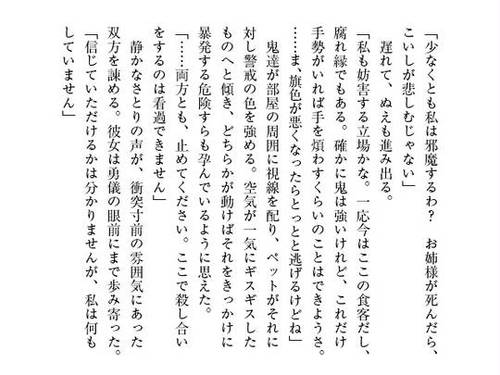 「少なくとも私は邪魔するわ？　お姉様が死んだら、
こいしが悲しむじゃない」
　遅れて、ぬえも進み出る。
「私も妨害する立場かな。一応今はここの食客だし、
腐れ縁でもある。確かに鬼は強いけれど、これだけ
手勢がいれば手を煩わすくらいのことはできようさ。
……ま、旗色が悪くなったらとっとと逃げるけどね」
　鬼達が部屋の周囲に視線を配り、ペットがそれに
対し警戒の色を強める。空気が一気にギスギスした
ものへと傾き、どちらかが動けばそれをきっかけに
暴発する危険すらも孕んでいるように思えた。
「……両方とも、止めてください。ここで殺し合い
をするのは看過できません」
　静かなさとりの声が、衝突寸前の雰囲気にあった
双方を諫める。彼女は勇儀の眼前にまで歩み寄った。
「信じていただけるかは分かりませんが、私は何も
していません」